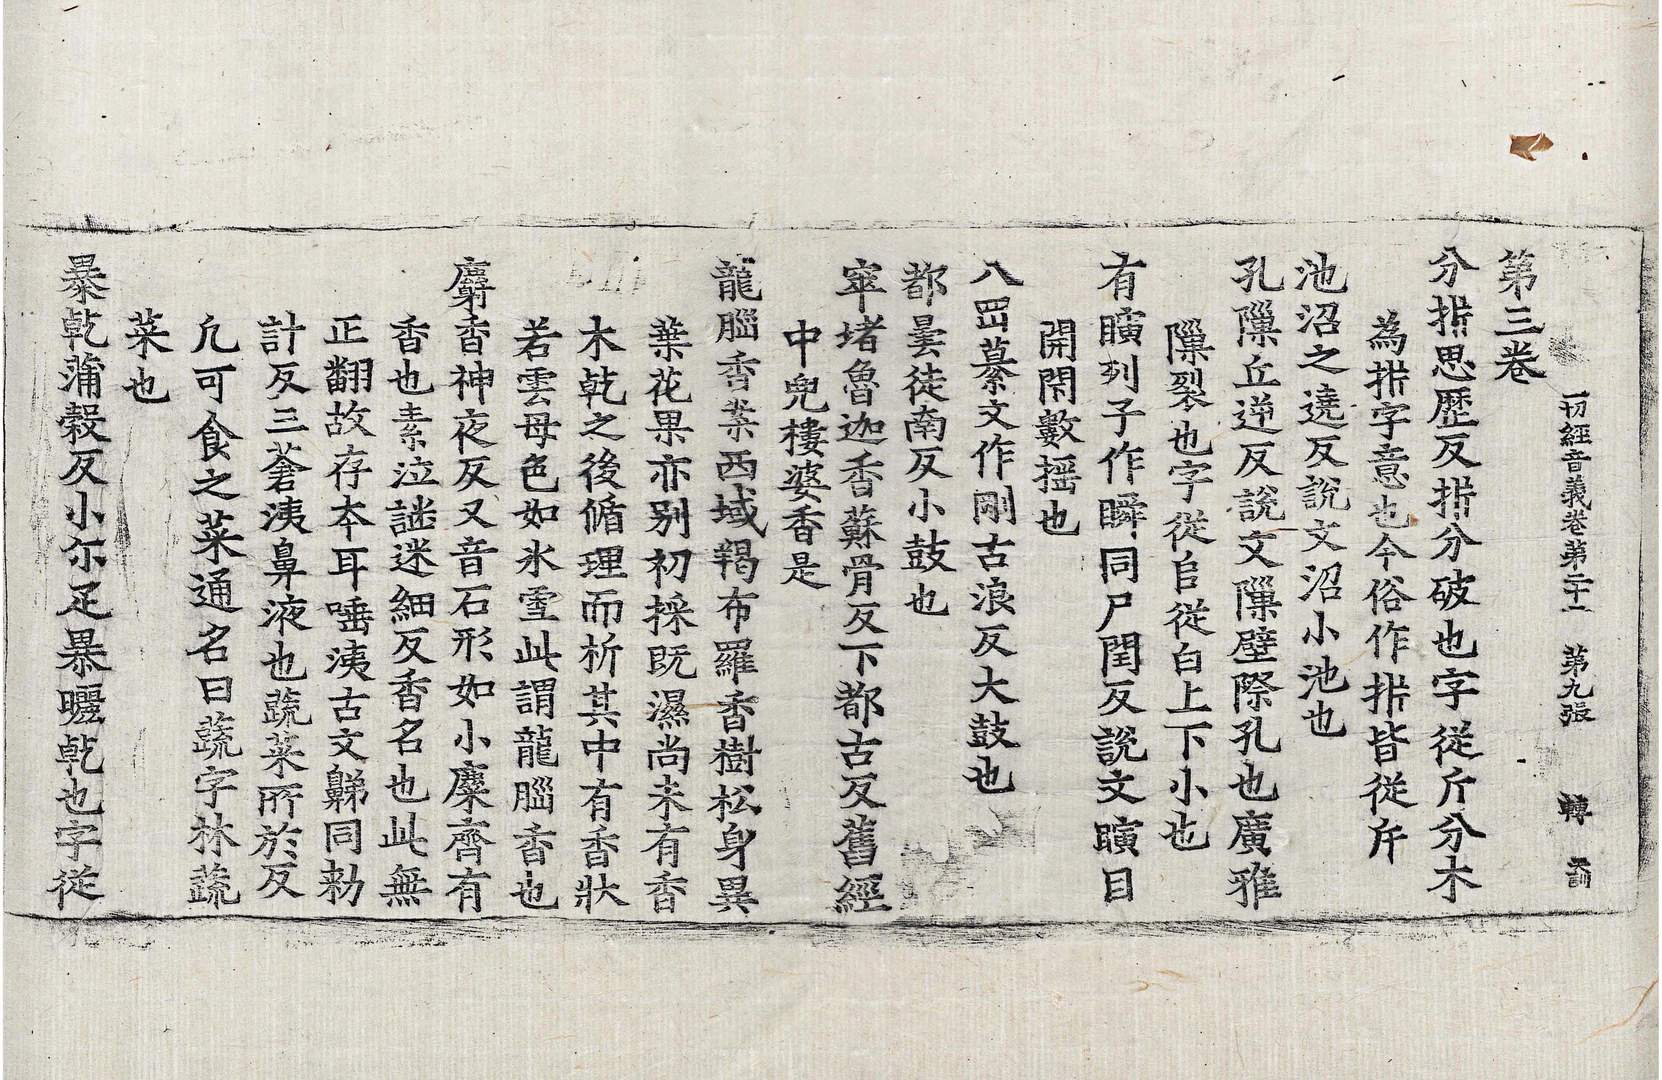 一切經音義卷第二十二　第九張　轉
第三卷
分㧗思歷反㧗分破也字從斤分木
為㧗字意也今俗作㧗皆從斤
池沼之遶反說文沼小池也
孔隟丘逆反說文隟壁際孔也廣雅
隟裂也字從𨸏從白上下小也
有瞚列子作瞬同尸閏反說文瞚目
開閇數搖也
八𦊆綦文作剛古浪反大鼓也
都曇徒南反小鼓也
窣堵魯迦香蘇骨反下都古反舊經
中兜樓婆香是
龍腦香業西域羯布羅香樹松身異
葉花果亦別初採既濕尚未有香
木乾之後循理而析其中有香狀
若雲母色如氷雪此謂龍腦香也
麝香神夜反又音石形如小麋齊有
香也素泣謎迷細反香名也此無
正翻故存本耳唾洟古文𪖦同勑
計反三蒼洟鼻液也蔬菜所於反
凢可食之菜通名曰蔬字林蔬
菜也
暴乾蒲穀反小尒疋暴曬乾也字從